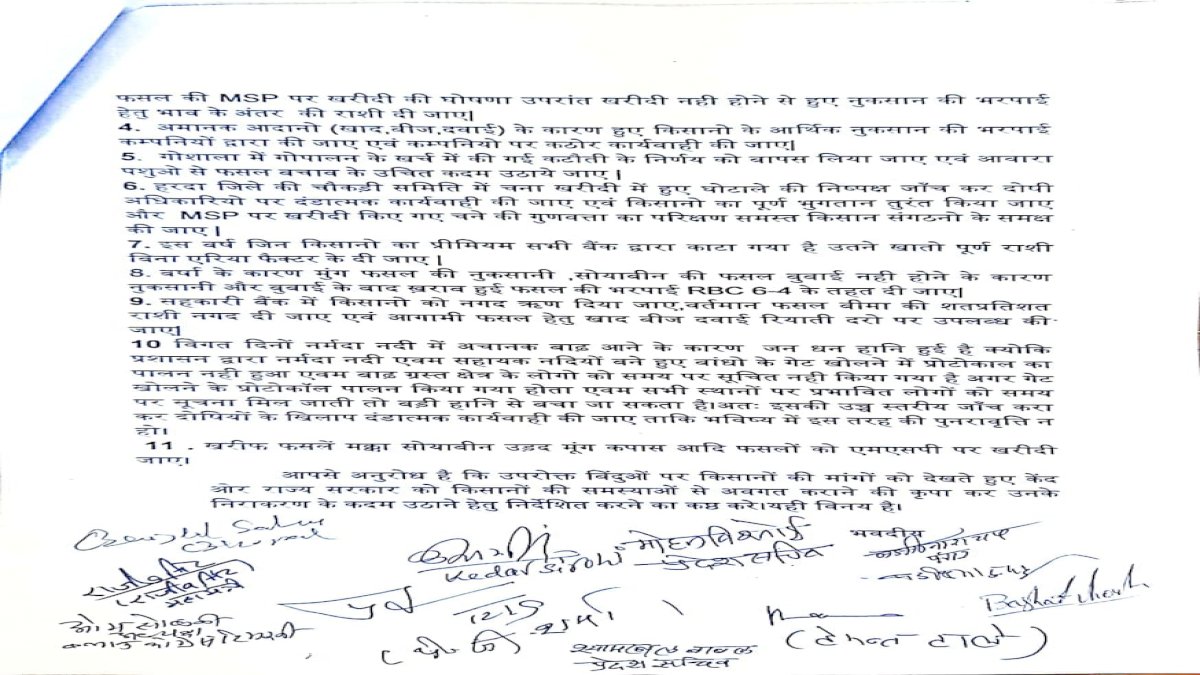 फसल की MSP पर खरीदी की घोषणा उपरांत खरीदी नही होने से हुए नुकसान की भरपाई
हेतु भाव के अंतर की राशी दी जाए|
4. अमानक आदानो (खाद,बीज,दवाई) के कारण हुए किसानो के आर्थिक नुकसान की भरपाई
कम्पनियों द्वारा की जाए एवं कम्पनियो पर कठोर कार्यवाही की जाए|
5. गोशाला में गोपालन के खर्च में की गई कटौती के निर्णय को वापस लिया जाए एवं आवारा
पशुओ से फसल बचाव के उचित कदम उठाये जाए |
6. हरदा जिले की चौकडी समिति में चना खरीदी में हुए घोटाले की निष्पक्ष जाँच कर दोषी
अधिकारियो पर दंडात्मक कार्यवाही की जाए एवं किसानो का पूर्ण भुगतान तुरंत किया जाए
और MSP पर खरीदी किए गए चने की गुणवत्ता का परिक्षण समस्त किसान संगठनो के समक्ष
की जाए |
7. इस वर्ष जिन किसानो का प्रीमियम सभी बैंक द्वारा काटा गया है उतने खातो पूर्ण राशी
बिना एरिया फैक्टर के दी जाए |
8. बर्षा के कारण मुंग फसल की नुकसानी ,सोयाबीन की फसल बुवाई नही होने के कारण
नुकसानी और बुवाई के बाद ख़राब हुई फसल की भरपाई RBC 6-4 के तहत दी जाए|
9. सहकारी बैंक में किसानो को नगद ऋण दिया जाए,,वर्तमान फसल बीमा की शतप्रतिशत
राशी नगद दी जाए एवं आगामी फसल हेतु खाद बीज दवाई रियाती दरो पर उपलब्ध की
जाए|
10 विगत दिनों नर्मदा नदी में अचानक बाढ़ आने के कारण जन धन हानि हुई है क्योकि
प्रशासन द्वारा नर्मदा नदी एवम सहायक नदियों बने हुए बांधो के गेट खोलने में प्रोटोकाल का
पालन नही हुआ एवम बाढ ग्रस्त क्षेत्र के लोगो को समय पर सूचित नही किया गया है अगर गेट
खोलने के प्रोटोकॉल पालन किया गया होता एवम सभी स्थानों पर प्रभावित लोगों को समय
पर सूचना मिल जाती तो बडी हानि से बचा जा सकता है।अतः इसकी उच्च स्तरीय जाँच करा
कर दोषियों के खिलाप दंडात्मक कार्यवाही की जाए ताकि भविष्य में इस तरह की पुनरावृत्ति न
हो।
11 . खरीफ फसलें मक्का सोयाबीन उड़द मूंग कपास आदि फसलों को एमएसपी पर खरीदी
जाए।
आपसे अनुरोध है कि उपरोक्त बिंदुओं पर किसानों की मांगों को देखते हुए केंद
और राज्य सरकार को किसानों की समस्याओं से अवगत कराने की कृपा कर उनके
निराकरण के कदम उठाने हेतु निर्देशित करने का कष्ठ करे।यही विनय है।
भवदीय
Kedar Sirohi
प्रदेश सचिव
शर्मा
प्रदेश सचिव